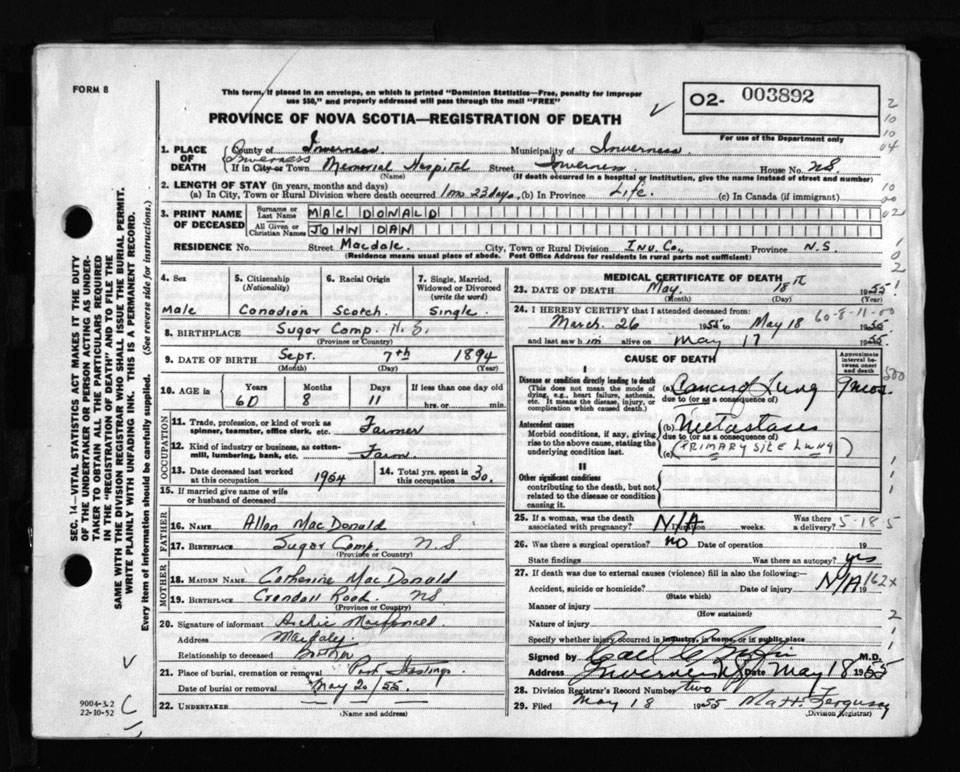 FORM 8
This form, if placed in an envelope, on which is printed "Dominion Statistics—Free, penalty for improper
use $50," and properly addressed will pass through the mail "FREE"
O2- 003892
For use of the Department only
PROVINCE OF NOVA SCOTIA—REGISTRATION OF DEATH
1. PLACE OF DEATH County of Inverness Municipality of Inverness
If in City or Town Inverness Memorial Hospital Street Inverness House No. NS
(Name) (If death occurred in a hospital or institution, give the name instead of street and number)
2. LENGTH OF STAY (in years, months and days)
(a) In City, Town or Rural Division where death occurred 1 mo 23 days (b) In Province Life (c) In Canada (if immigrant)
3. PRINT NAME OF DECEASED Surname or Last Name MAC DONALD
All Given or Christian Names JOHN DAN
RESIDENCE No. Street Macdale City, Town or Rural Division Inv. Co., Province N.S.
(Residence means usual place of abode. Post Office Address for residents in rural parts not sufficient)
4. Sex Male
5. Citizenship (Nationality) Canadian
6. Racial Origin Scotch
7. Single, Married, Widowed or Divorced (write the word) Single
8. BIRTHPLACE Sugar Camp N.S.
(Province or Country)
9. DATE OF BIRTH Sept. 7th 1894
(Month) (Day) (Year)
10. AGE in Years 60 Months 8 Days 11 If less than one day old hrs. or min.
OCCUPATION
11. Trade, profession, or kind of work as spinner, teamster, office clerk, etc. Farmer
12. Kind of industry or business, as cotton-mill, lumbering, bank, etc. Farm
13. Date deceased last worked at this occupation 1954
14. Total yrs. spent in this occupation 30
15. If married give name of wife or husband of deceased
FATHER
16. NAME Allan MacDonald
17. BIRTHPLACE Sugar Camp N S
(Province or Country)
MOTHER
18. MAIDEN NAME Catherine MacDonald
19. BIRTHPLACE Road NS
(Province or Country)
20. Signature of informant Archie MacDonald
Address
Relationship to deceased Brother
21. Place of burial, cremation or removal Port Hastings
Date of burial or removal May 20/55
22. UNDERTAKER
(Name and address)
MEDICAL CERTIFICATE OF DEATH
23. DATE OF DEATH May 18th 1955
(Month) (Day) (Year)
24. I HEREBY CERTIFY that I attended deceased from: 60-8-11-00
March 26 1955 to May 18 1955
and last saw him alive on May 17 1955
CAUSE OF DEATH
Approximate interval between onset and death
I
Disease or condition directly leading to death
(This does not mean the mode of dying, e.g., heart failure, asthenia, etc. It means the disease, injury, or complication which caused death.)
(a) Cancer of Lung 9 mos.
due to (or as a consequence of)
Antecedent causes
Morbid conditions, if any, giving rise to the above cause, stating the underlying condition last.
(b) Metastases
due to (or as a consequence of)
(c) (PRIMARY SITE LUNG)
II
Other significant conditions
contributing to the death, but not related to the disease or condition causing it.
25. If a woman, was the death associated with pregnancy? N/A Duration weeks. Was there a delivery? 5-18-5
26. Was there a surgical operation? no Date of operation 19
State findings Was there an autopsy? yes
27. If death was due to external causes (violence) fill in also the following:—
Accident, suicide or homicide? Date of injury N/A 19 162x
(State which)
Manner of injury
(How sustained)
Nature of injury
Specify whether injury occurred in industry, in home, or in public place
Signed by M.D.
Address Inverness NS Date May 18 1955
28. Division Registrar's Record Number two
29. Filed May 18 1955 Matt. Ferguson
(Division Registrar)
SEC. 14—VITAL STATISTICS ACT MAKES IT THE DUTY
OF THE UNDERTAKER OR PERSON ACTING AS UNDER-
TAKER TO OBTAIN ALL THE PARTICULARS REQUIRED
IN THE "REGISTRATION OF DEATH" AND TO FILE THE
SAME WITH THE DIVISION REGISTRAR WHO SHALL ISSUE THE BURIAL PERMIT.
WRITE PLAINLY WITH UNFADING INK. THIS IS A PERMANENT RECORD.
Every item of information should be carefully supplied. (See reverse side for instructions.)
9004-3.2
22-10-52
C